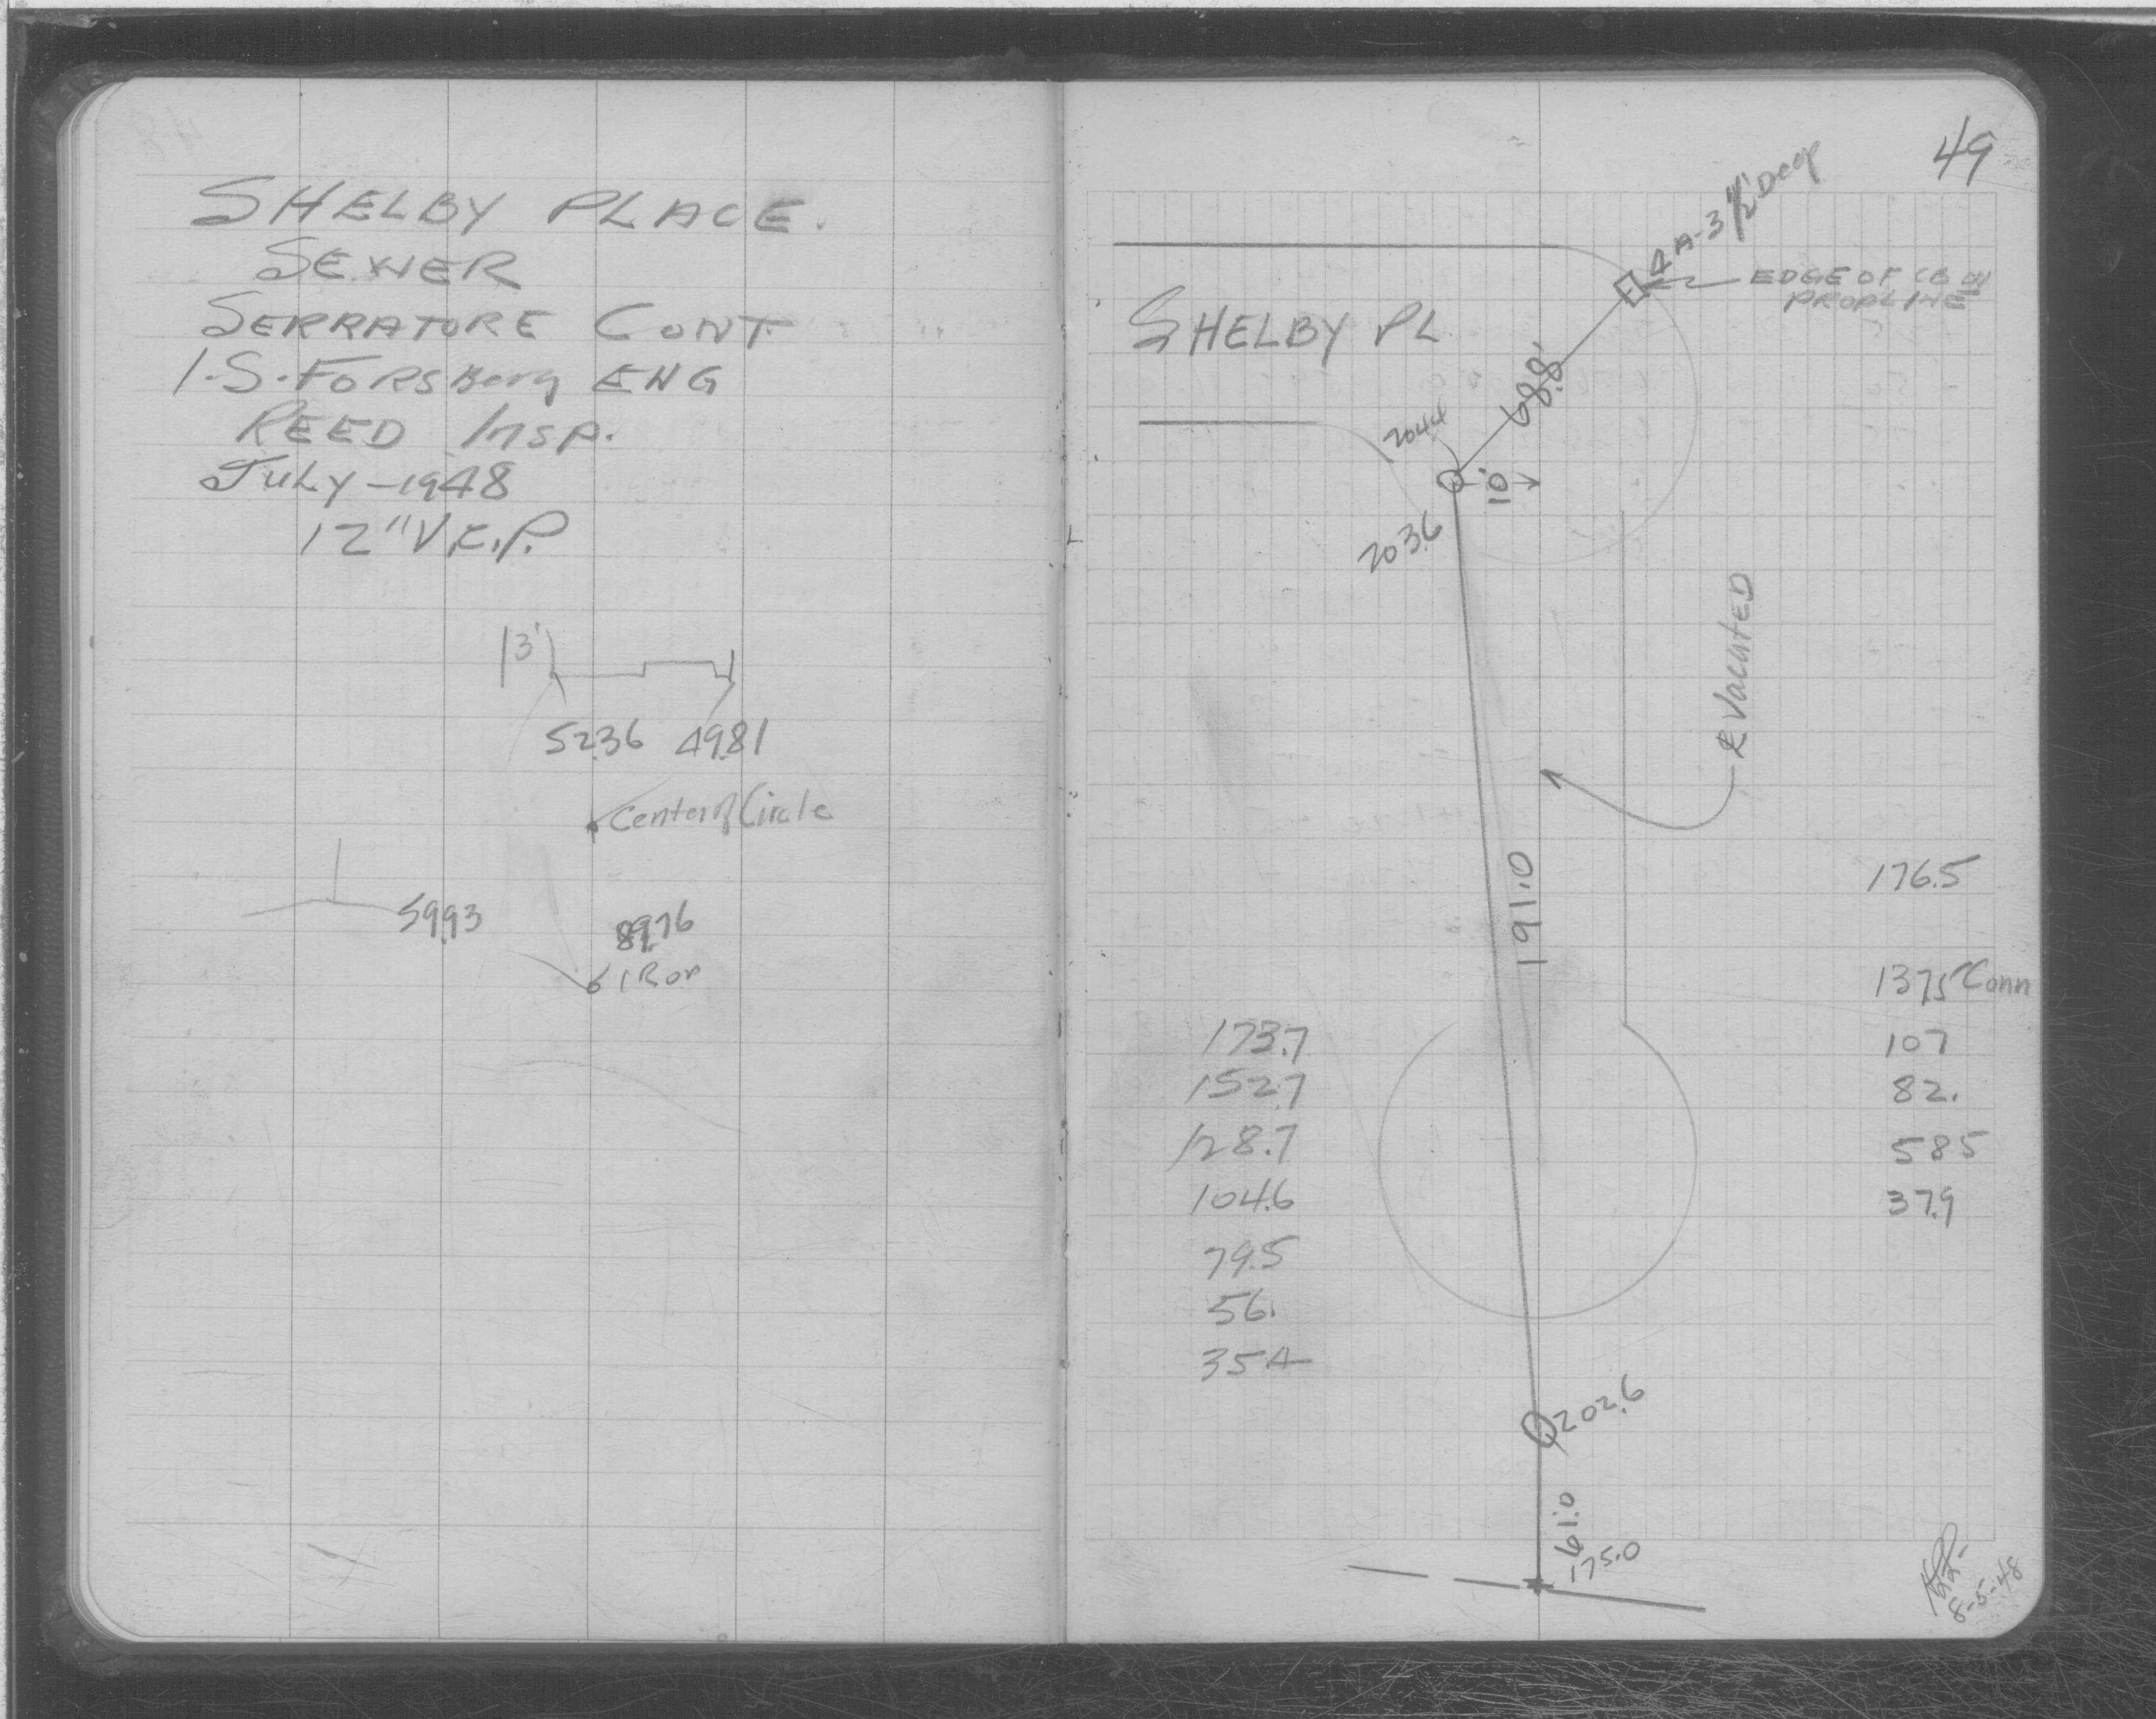 SHELBY PLACE.
SEWER
SERRATORE CONT
I.S. FORSBerg ENG
REED Insp.
July-1948
12" V.C.P.
13'
52.36 49.81
Center of Circle
59.93
89.76
IRon
49
4 A-3 1/2' Deep
EDGE OF CB ON
PROP. LINE
SHELBY PL
68.8'
204.4
10'
203.6
Vacated
191.0
176.5
137.5 Conn
107
82.
58.5
37.9
173.7
152.7
128.7
104.6
79.5
56.
35.4
202.6
61.0
175.0
8-5-48